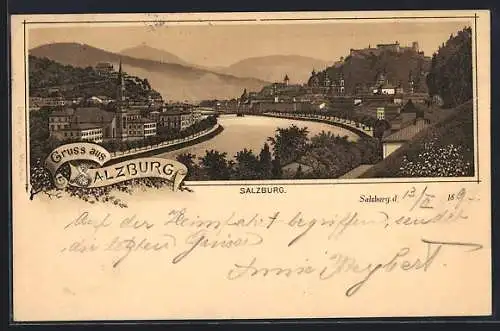 Gruss aus
SALZBURG.
SALZBURG.
Salzburg d. 13/X 189
Auf der Heimfahrt begriffen, sendet
die letzten Grüsse